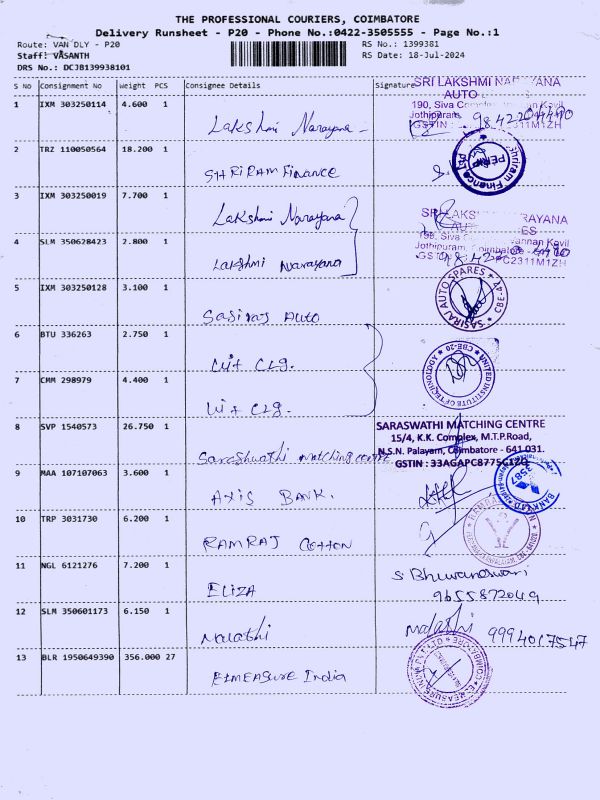 THE PROFESSIONAL COURIERS, COIMBATORE
Delivery Runsheet - P20 - Phone No.:0422-3505555 - Page No.:1
Route: VAN DLY - P20
RS No.: 1399381
Staff: VASANTH
RS Date: 18-Jul-2024
DRS No.: DCJB139938101
S No Consignment No Weight PCS Consignee Details Signature
SRI LAKSHMI NARAYANA
AUTO
1 IXM 303250114 4.600 1 Lakshmi Narayana
190, Siva
Jothipuram,
GSTIN 2311M1ZH
2 TRZ 110050564 18.200 1 SHRIRAM Finance
Shriram Finance
3 IXM 303250019 7.700 1 Lakshmi Narayana
SRI LAKS RAYANA
4 SLM 350628423 2.800 1 Lakshmi Narayana
190, Siva vannan Kovil
Jothipuram, Coimbatore
GSTIN PC2311M1ZH
5 IXM 303250128 3.100 1 Sasiraj Auto
SASIRAJ AUTO SPARES CBE-47
6 BTU 336263 2.750 1 Uit Clg.
UNITED INSTITUTE OF TECHNOLOGY CBE-20
7 CMM 298979 4.400 1 Uit Clg.
8 SVP 1540573 26.750 1 Sarashwathi matching centre
SARASWATHI MATCHING CENTRE
15/4, K.K. Complex, M.T.P.Road,
N.S.N. Palayam, Coimbatore - 641 031.
GSTIN : 33AGAPC8775
9 MAA 107107063 3.600 1 AXIS BANK.
3587
BANK LTD
10 TRP 3031730 6.200 1 RAMRAJ COTTON
11 NGL 6121276 7.200 1 ELIZA
S. Bhuvaneswari
9655872049
12 SLM 350601173 6.150 1 Malathi
Malathi 9994017547
13 BLR 1950649390 356.000 27 EIMEASURE India
COIMBATORE